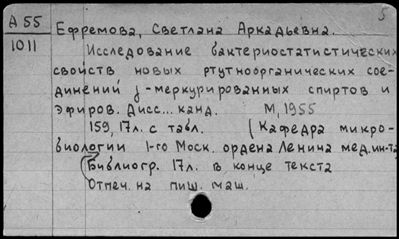 5
А 55
1011
Ефремова, Светлана Аркадьевна.
Исследование бактериостатистических
свойств новых ртутноорганических сое-
динений j-меркурированных спиртов и
эфиров. Дисс... канд. М, 1955
159, 17л. с табл. (Кафедра микро-
биологии 1-го Моск. ордена Ленина мед. ин-та
Библиогр. 17л. в конце текста
Отпеч. на пиш. маш.